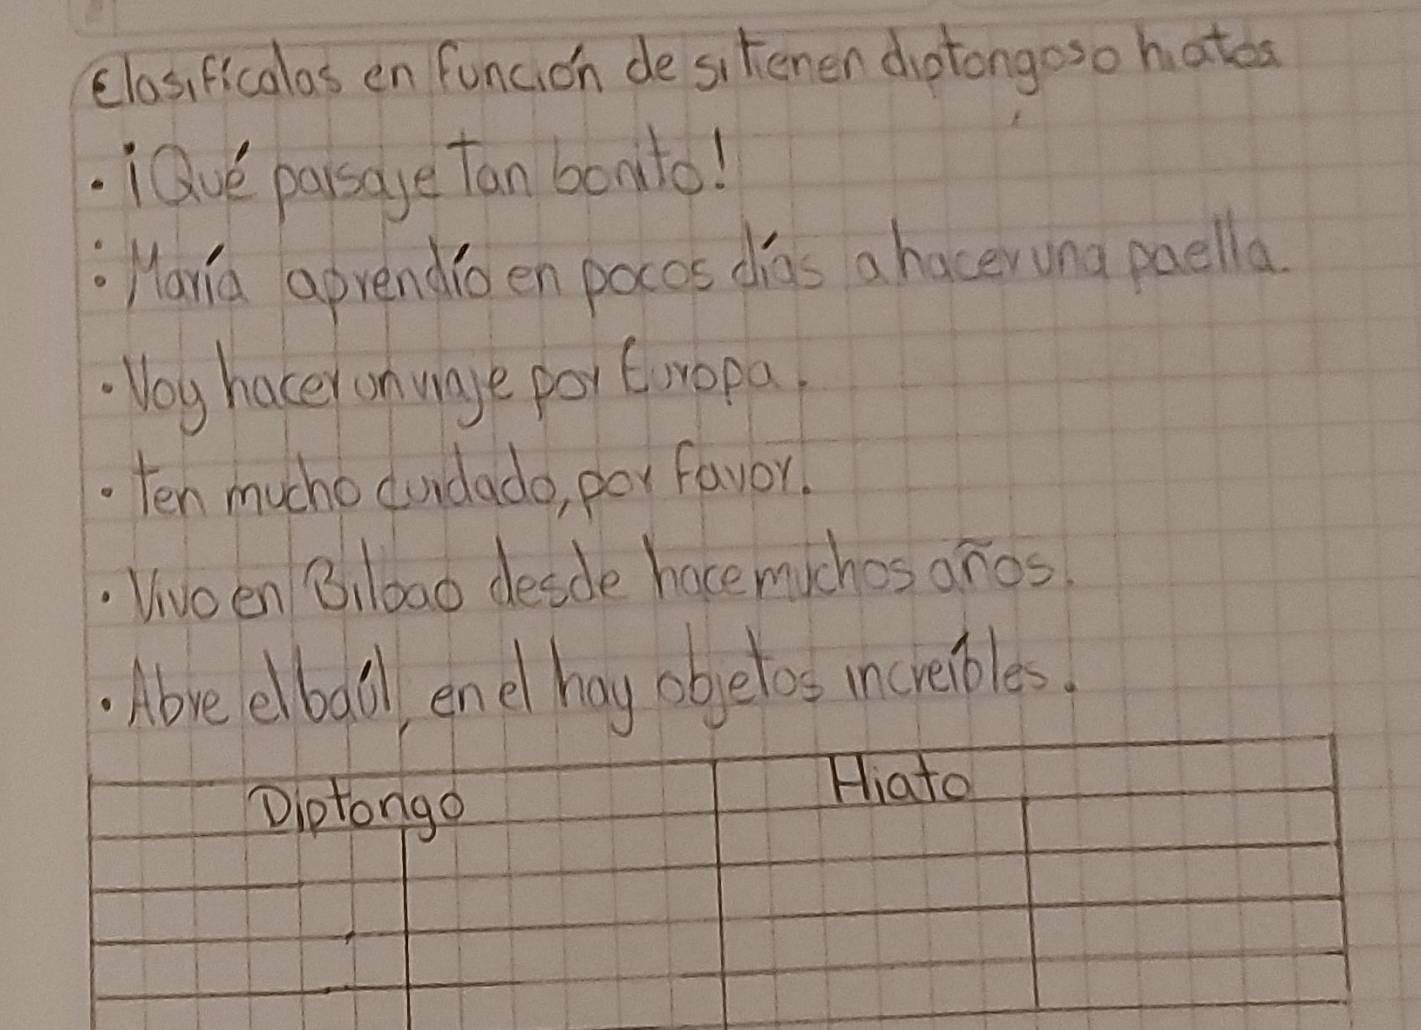 Clasifícalas en función de si tienen diptongos o hiatos
· ¡Qué paisaje tan bonito!
· María aprendío en pocos días a hacer una paella.
· Voy hacer un viaje por Europa.
· Ten mucho cuidado, por favor.
· Vivo en Bilbao desde hace muchos años.
· Abre el baúl, en el hay objetos increíbles.
Diptongo Hiato